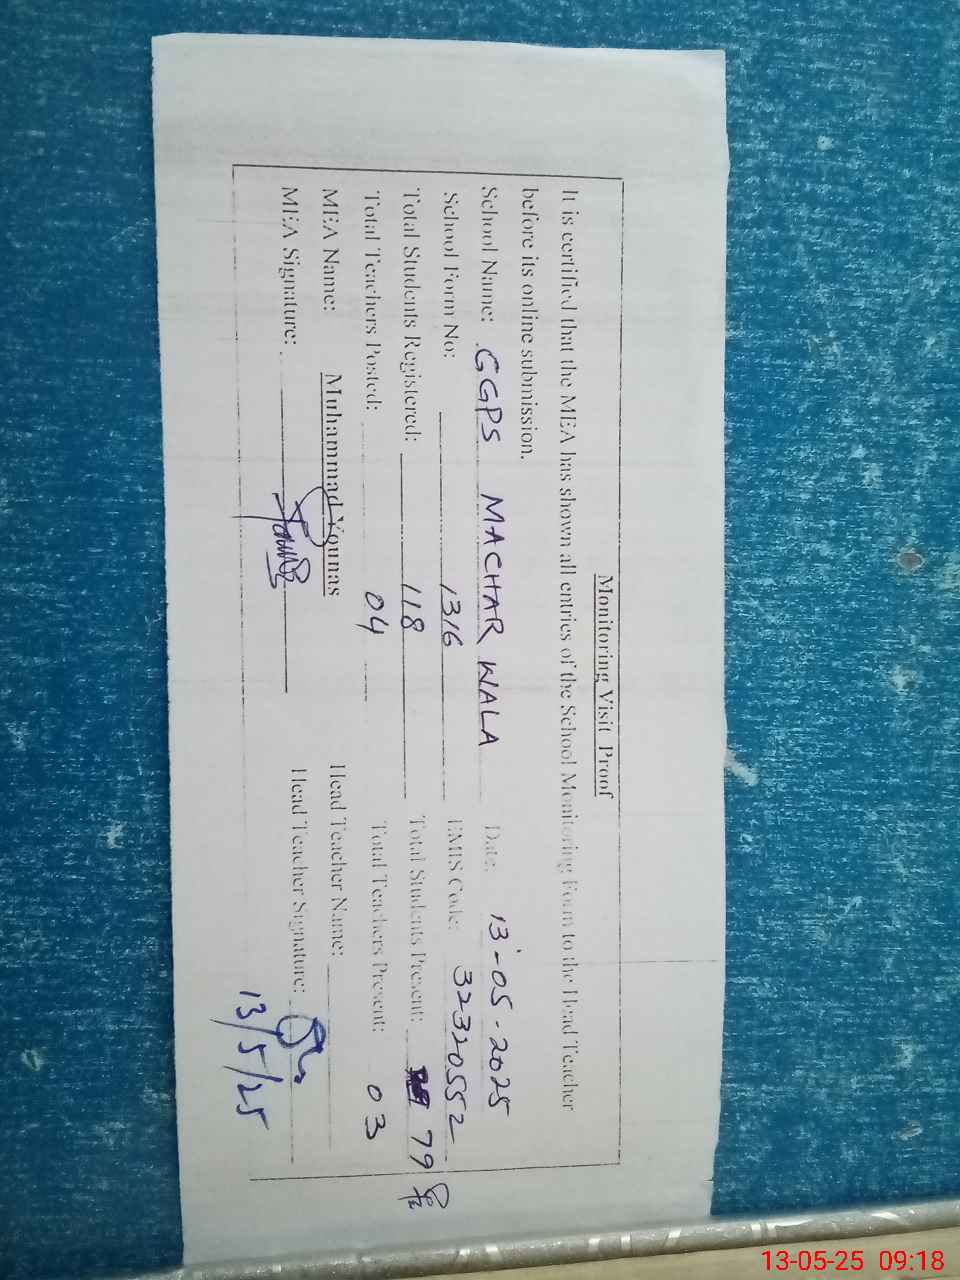 Monitoring Visit Proof
It is certified that the MEA has shown all entries of the School Monitoring Form to the Head Teacher
before its online submission.
School Name: GGPS MACHAR WALA Date: 13-05-2025
School Form No: 1316 EMIS Code: 32320552
Total Students Registered: 118 Total Students Present: 79
Total Teachers Posted: 04 Total Teachers Present: 03
MEA Name: Muhammad Younas Head Teacher Name:
MEA Signature: Head Teacher Signature:
13/5/25
13-05-25 09:18